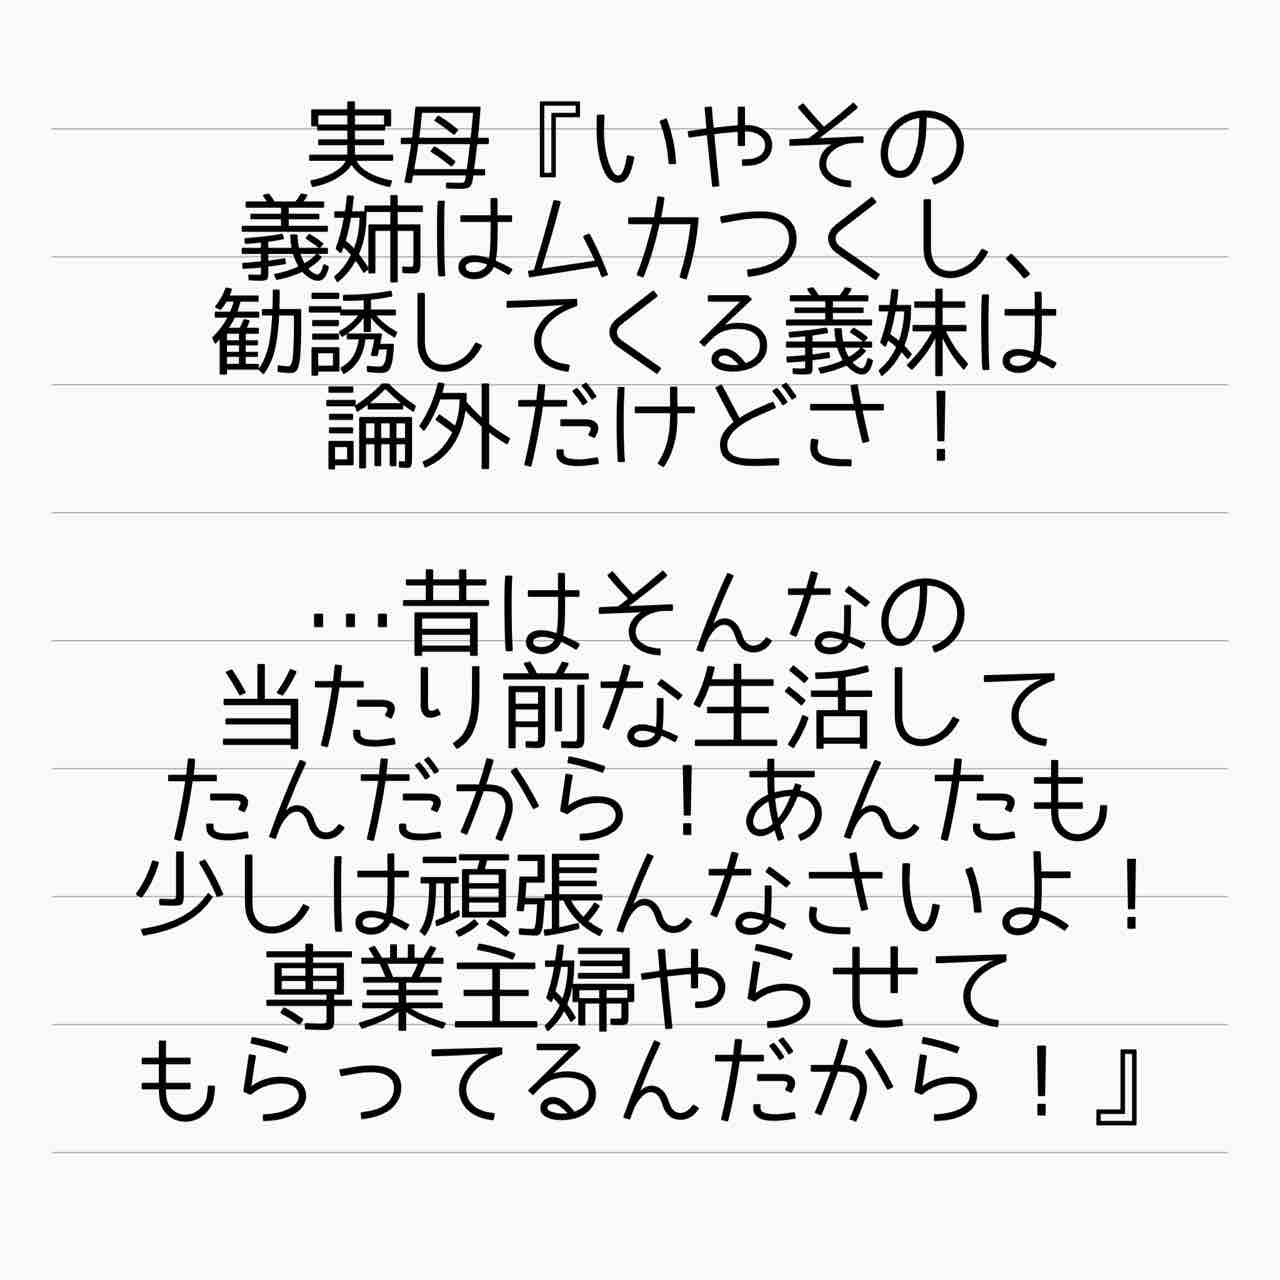 実母『いやその
義姉はムカつくし、
勧誘してくる義妹は
論外だけどさ！
…昔はそんなの
当たり前な生活して
たんだから！あんたも
少しは頑張んなさいよ！
専業主婦やらせて
もらってるんだから！』